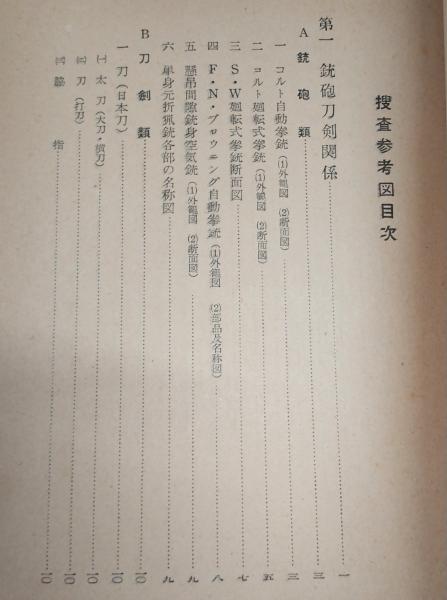 搜査参考図目次
第一 銃砲刀剣関係……一
A 銃砲類……三
一 コルト自動拳銃 (1)外観図 (2)断面図……三
二 コルト廻転式拳銃 (1)外観図 (2)断面図……五
三 S・W廻転式拳銃断面図……七
四 F・N・ブロウニング自動拳銃 (1)外観図 (2)部品及名称図……八
五 懸吊間隙銃身空気銃 (1)外観図 (2)断面図……九
六 単身元折猟銃各部の名称図……九
B 刀剣類……一〇
一 刀(日本刀)……一〇
㈠ 太刀(大刀・横刀)……一〇
㈡ 刀(打刀)……一〇
㈢ 脇指……一〇